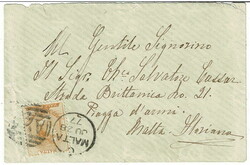 Al Gentile Signorino
Il Sigr. Chs. Salvatore Cassar
Strada Brittanica No. 21.
Piazza d'armi
Malta. Floriana
MALTA
JU 28
77